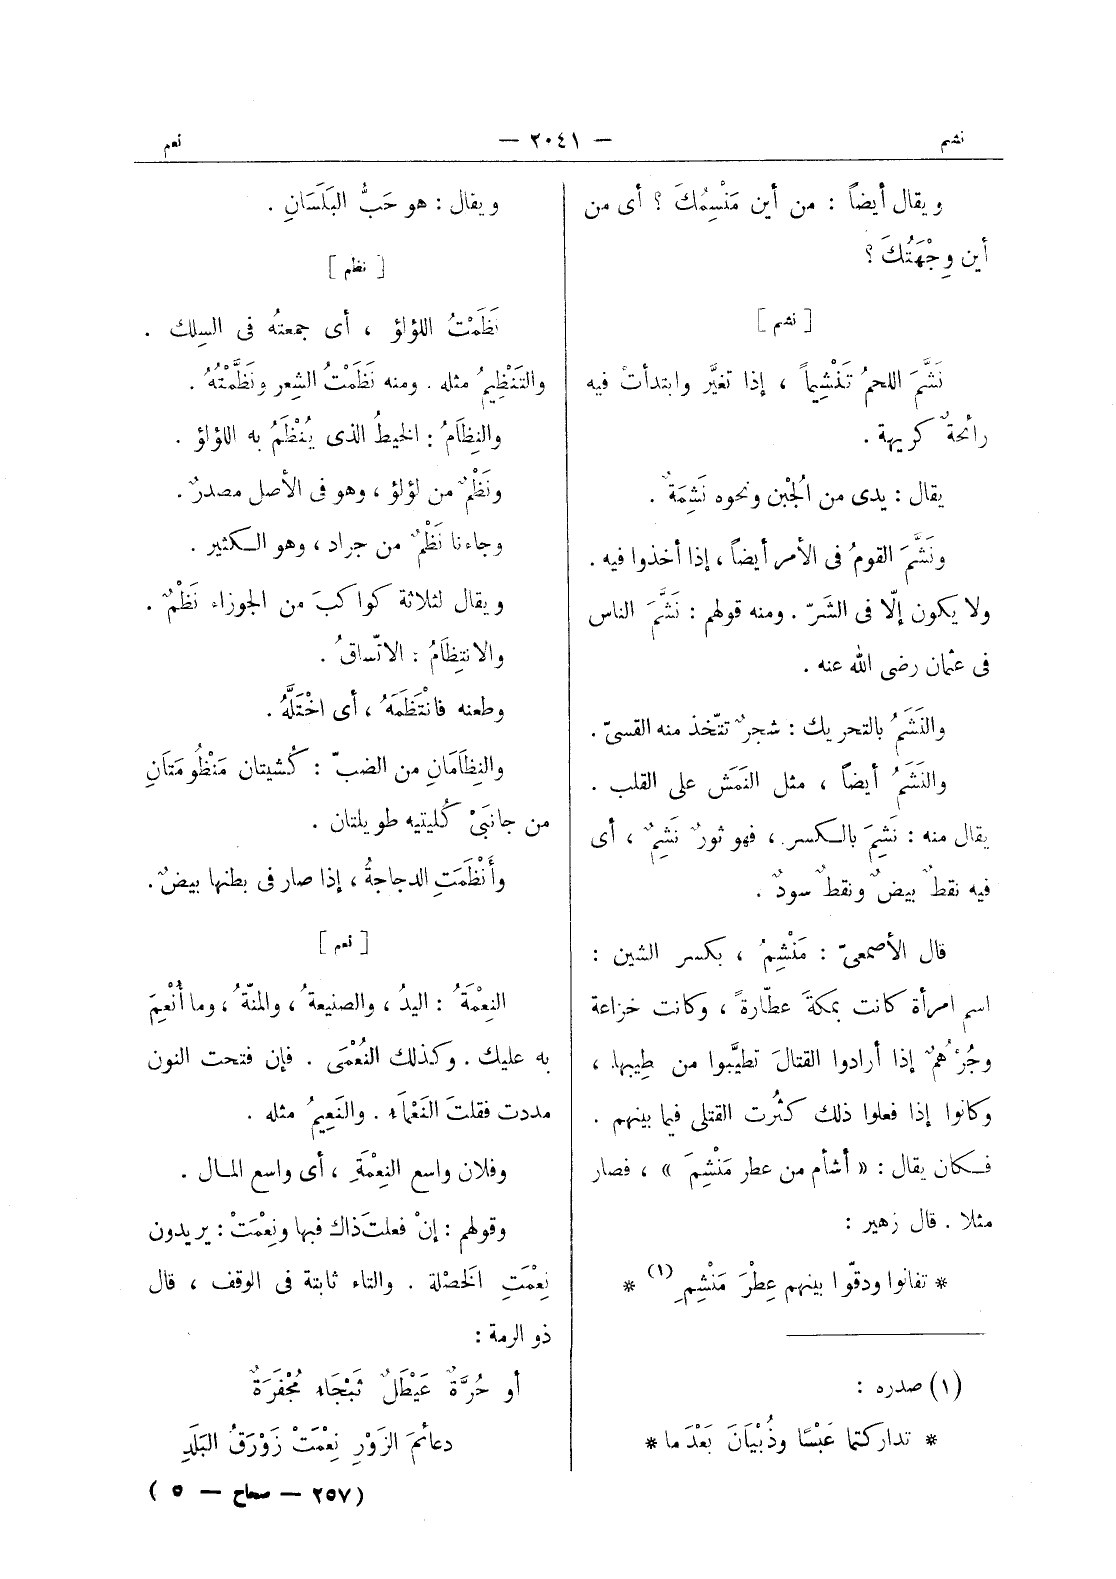 نشم
— ٢٠٤١ —
نعم
ويقال أيضاً : من أين مَنْسِمُكَ ؟ أى من
أين وِجْهَتُكَ ؟
[ نشم ]
نَشَّمَ اللحمُ تَنْشِيماً ، إذا تغيَّر وابتدأتْ فيه
رائحةٌ كريهة .
يقال : يدى من الجُبْن ونحوه نَشِمَةٌ .
ونَشَّمَ القومُ فى الأمر أيضاً ، إذا أخذوا فيه .
ولا يكون إلّا فى الشَرّ . ومنه قولهم : نَشَّمَ الناس
فى عثمان رضى الله عنه .
والنَشَمُ بالتحريك : شجرٌ تتّخذ منه القسىّ .
والنَشَمُ أيضاً ، مثل النَمَش على القلب .
يقال منه : نَشِمَ بالكسر ، فهو ثورٌ نَشِمٌ ، أى
فيه نقطٌ بيضٌ ونقطٌ سودٌ .
قال الأصمعىّ : مَنْشِمُ ، بكسر الشين :
اسم امرأة كانت بمكةَ عطّارةً ، وكانت خزاعة
وجُرْهُمٌ إذا أرادوا القتالَ تطيَّبوا من طِيبها ،
وكانوا إذا فعلوا ذلك كثُرت القتلى فيما بينهم .
فكان يقال : « أشأم من عطر مَنْشِمَ » ، فصار
مثلا . قال زهير :
* تفانوا ودقّوا بينهم عِطْرَ مَنْشِمِ (١) *
(١) صدره :
* تداركتما عَبْسًا وذُبْيَانَ بَعْدَ ما *
ويقال : هو حَبُّ البَلَسَانِ .
[ نظم ]
نَظَمْتُ اللؤلؤ ، أى جمعتُه فى السِلك .
والتَنْظِيمُ مثله . ومنه نَظَمْتُ الشِعر ونَظَّمْتُهُ .
والنِظَامُ : الخيطُ الذى يُنْظَمُ به اللؤلؤ .
ونَظْمٌ من لؤلؤ ، وهو فى الأصل مصدرٌ .
وجاءنا نَظْمٌ من جراد ، وهو الكثير .
ويقال لثلاثة كواكبَ من الجوزاء نَظْمٌ .
والانتِظَامُ : الاتّساقُ .
وطعنه فانْتَظَمَهُ ، أى اخْتَلَّهُ .
والنِظَامَانِ من الضبّ : كُشيتان مَنْظُومَتاَنِ
من جانبَىْ كُليتيه طويلتان .
وأَنْظَمَتِ الدجاجةُ ، إذا صار فى بطنها بيضٌ .
[ نعم ]
النِعْمَةُ : اليدُ ، والصنيعةُ ، والمنّةُ ، وما أُنْعِمَ
به عليك . وكذلك النُعْمَى . فإن فتحت النون
مددت فقلتَ النَعْمَاء . والنَعِيمُ مثله .
وفلان واسع النِعْمَةِ ، أى واسع المال .
وقولهم : إنْ فعلتَ ذاك فبها ونِعْمَتْ : يريدون
نِعْمَتِ الخَصْلة . والتاء ثابتة فى الوقف ، قال
ذو الرمة :
أو حُرَّةٌ عَيْطَلٌ ثَبْجَاء مُجْفَرَةٌ
دعائمَ الزَوْرِ نِعْمَتْ زَوْرَقُ البَلَدِ
(٢٥٧ — صحاح — ٥ )